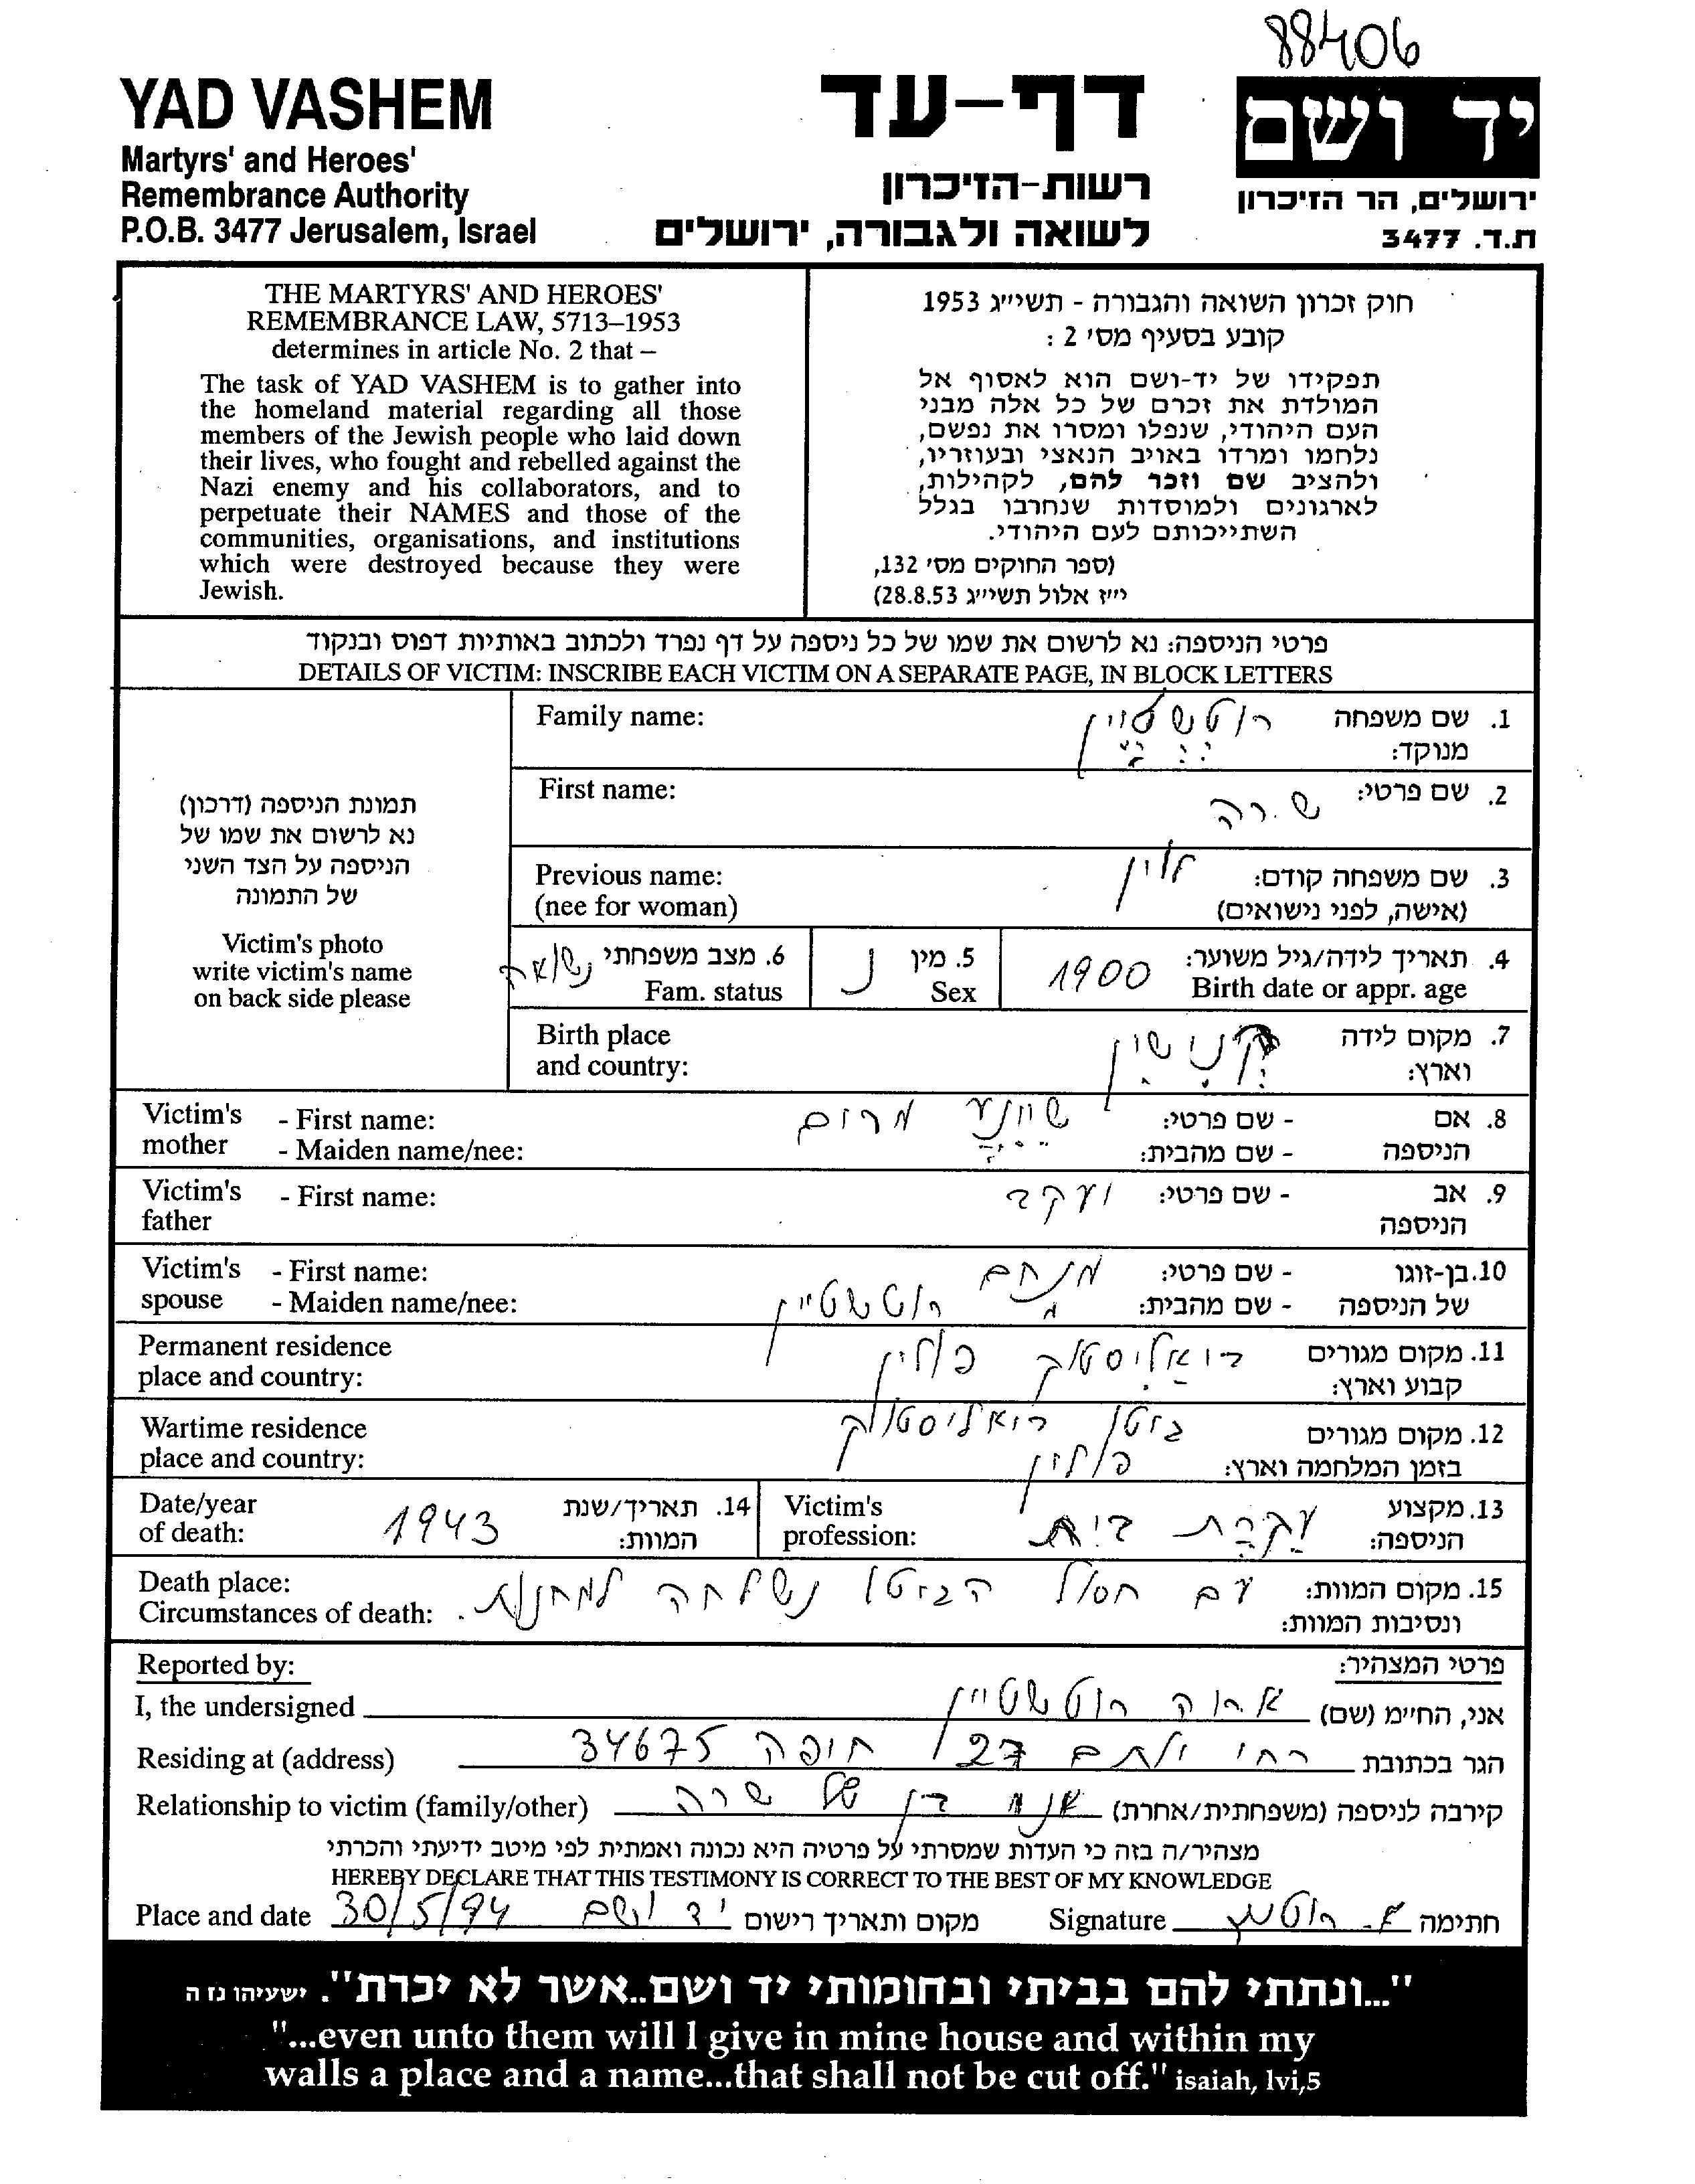 88406
YAD VASHEM
Martyrs' and Heroes'
Remembrance Authority
P.O.B. 3477 Jerusalem, Israel
דף-עד
רשות-הזיכרון
לשואה ולגבורה, ירושלים
יד ושם
ירושלים, הר הזיכרון
ת.ד. 3477
THE MARTYRS' AND HEROES'
REMEMBRANCE LAW, 5713–1953
determines in article No. 2 that –
The task of YAD VASHEM is to gather into
the homeland material regarding all those
members of the Jewish people who laid down
their lives, who fought and rebelled against the
Nazi enemy and his collaborators, and to
perpetuate their NAMES and those of the
communities, organisations, and institutions
which were destroyed because they were
Jewish.
חוק זכרון השואה והגבורה - תשי״ג 1953
קובע בסעיף מס׳ 2 :
תפקידו של יד-ושם הוא לאסוף אל
המולדת את זכרם של כל אלה מבני
העם היהודי, שנפלו ומסרו את נפשם,
נלחמו ומרדו באויב הנאצי ובעוזריו,
ולהציב שם וזכר להם, לקהילות,
לארגונים ולמוסדות שנחרבו בגלל
השתייכותם לעם היהודי.
(ספר החוקים מס׳ 132,
י״ז אלול תשי״ג 28.8.53)
פרטי הניספה: נא לרשום את שמו של כל ניספה על דף נפרד ולכתוב באותיות דפוס ובנקוד
DETAILS OF VICTIM: INSCRIBE EACH VICTIM ON A SEPARATE PAGE, IN BLOCK LETTERS
תמונת הניספה (דרכון)
נא לרשום את שמו של
הניספה על הצד השני
של התמונה
Victim's photo
write victim's name
on back side please
Family name: רוטשטיין 1. שם משפחה
מנוקד:
First name: שרה 2. שם פרטי:
Previous name: לוין 3. שם משפחה קודם:
(nee for woman) (אישה, לפני נישואים)
נשואה 6. מצב משפחתי נ 5. מין 1900 4. תאריך לידה/גיל משוער:
Fam. status Sex Birth date or appr. age
Birth place 7. מקום לידה
and country: וארץ:
Victim's - First name: מרום - שם פרטי: 8. אם
mother - Maiden name/nee: - שם מהבית: הניספה
Victim's - First name: יעקב - שם פרטי: 9. אב
father הניספה
Victim's - First name: מנחם - שם פרטי: 10. בן-זוגו
spouse - Maiden name/nee: רוטשטיין - שם מהבית: של הניספה
Permanent residence ביאליסטוק פולין 11. מקום מגורים
place and country: קבוע וארץ:
Wartime residence גיטו ביאליסטוק 12. מקום מגורים
place and country: פולין בזמן המלחמה וארץ:
Date/year 1943 14. תאריך/שנת
of death: המוות:
Victim's 13. מקצוע
profession: עקרת בית הניספה:
Death place: עם חסול הגיטו נשלחה למחנות. 15. מקום המוות:
Circumstances of death: ונסיבות המוות:
Reported by: פרטי המצהיר:
I, the undersigned רוטשטיין אני, החי״מ (שם)
Residing at (address) 27 חיפה 34675 הגר בכתובת
Relationship to victim (family/other) אני בן של שרה קירבה לניספה (משפחתית/אחרת)
מצהיר/ה בזה כי העדות שמסרתי על פרטיה היא נכונה ואמתית לפי מיטב ידיעתי והכרתי
HEREBY DECLARE THAT THIS TESTIMONY IS CORRECT TO THE BEST OF MY KNOWLEDGE
Place and date 30/5/94 יד ושם מקום ותאריך רישום Signature חתימה
"...ונתתי להם בביתי ובחומותי יד ושם..אשר לא יכרת". ישעיהו נז ה
"...even unto them will I give in mine house and within my
walls a place and a name...that shall not be cut off." isaiah, lvi,5